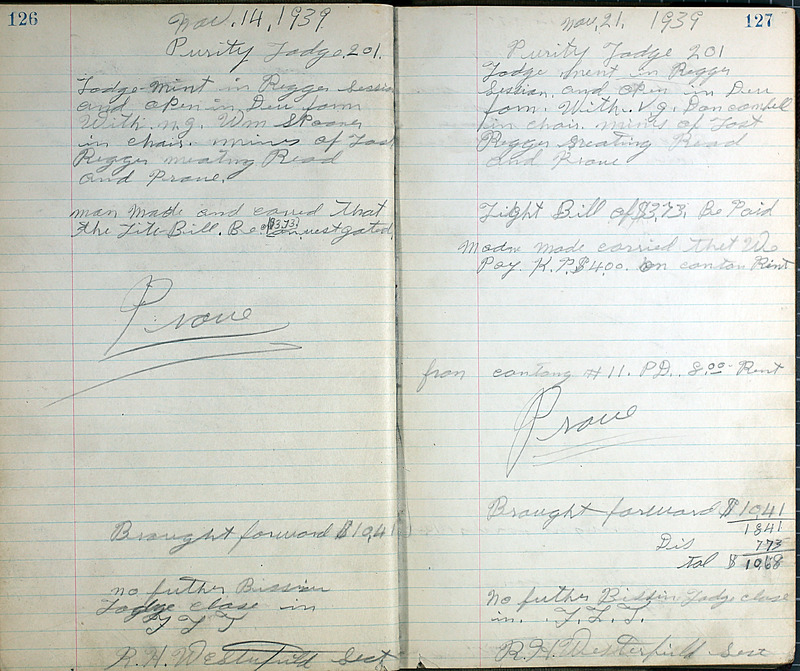 126
Nov. 14, 1939
Purity Lodge, 201.
Lodge mint in Regger Session
and open in Deu form
With. n.g. Wm Spooner
in chair. mines of Last
Regger meating Read
and Prove.
man made and caried that
the Lite Bill. Be of $3.73 investgated
Prove
Brought forward $10,41
no futher Bissinn
Lodge close in
F F F
R. H. Westerfield Sect
Nov, 21, 1939
127
Purity Lodge 201
Lodge ment in Regger
Session and open in Deu
fom. With. V.g. Dan
in chair. mines of Last
Regger Read
and Prove
Light Bill of $3.73. Be Paid
made carried thet We
Pay K.P. $4.00. on canton Rint
from cantong # 11. PD. 8.00 Rent
Prove
Brought forward $ 10,41
18 41
Dis 7 73
Tol $ 10,68
no futher Bissinn Lodge close
in. F. L. T.
R.H. Westerfield Sect